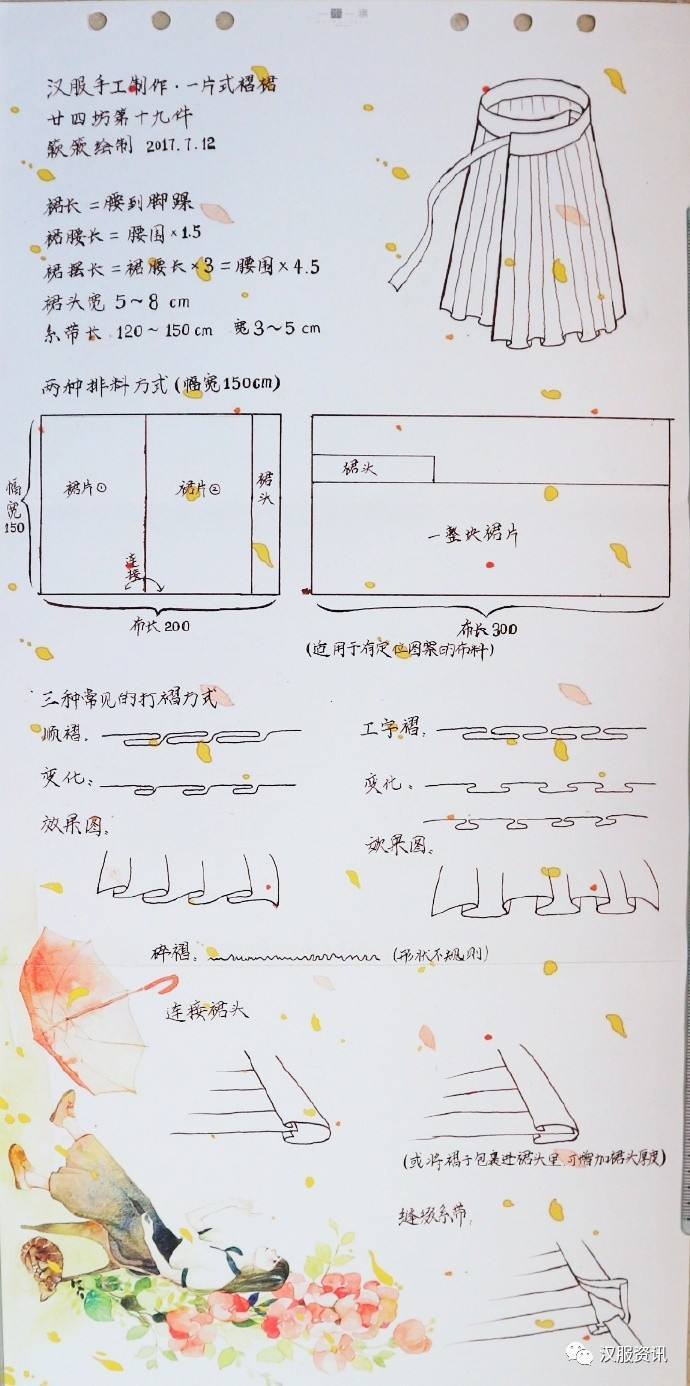 汉服手工制作·一片式褶裙
廿四坊第十九件
簌簌绘制 2017.7.12
裙长=腰到脚踝
裙腰长=腰围×1.5
裙摆长=裙腰长×3=腰围×4.5
裙头宽 5~8 cm
系带长 120~150cm 宽3~5 cm
两种排料方式(幅宽150cm)
幅宽150
裙片①
裙片②
裙头
连接
布长200
裙头
一整块裙片
布长300
(适用于有定位图案的布料)
三种常见的打褶方式
顺褶:
变化:
效果图:
工字褶:
变化:
效果图:
碎褶:
(形状不规则)
连接裙头
(或将褶子包裹进裙头里,可增加裙头厚度)
缝缀系带:
汉服资讯